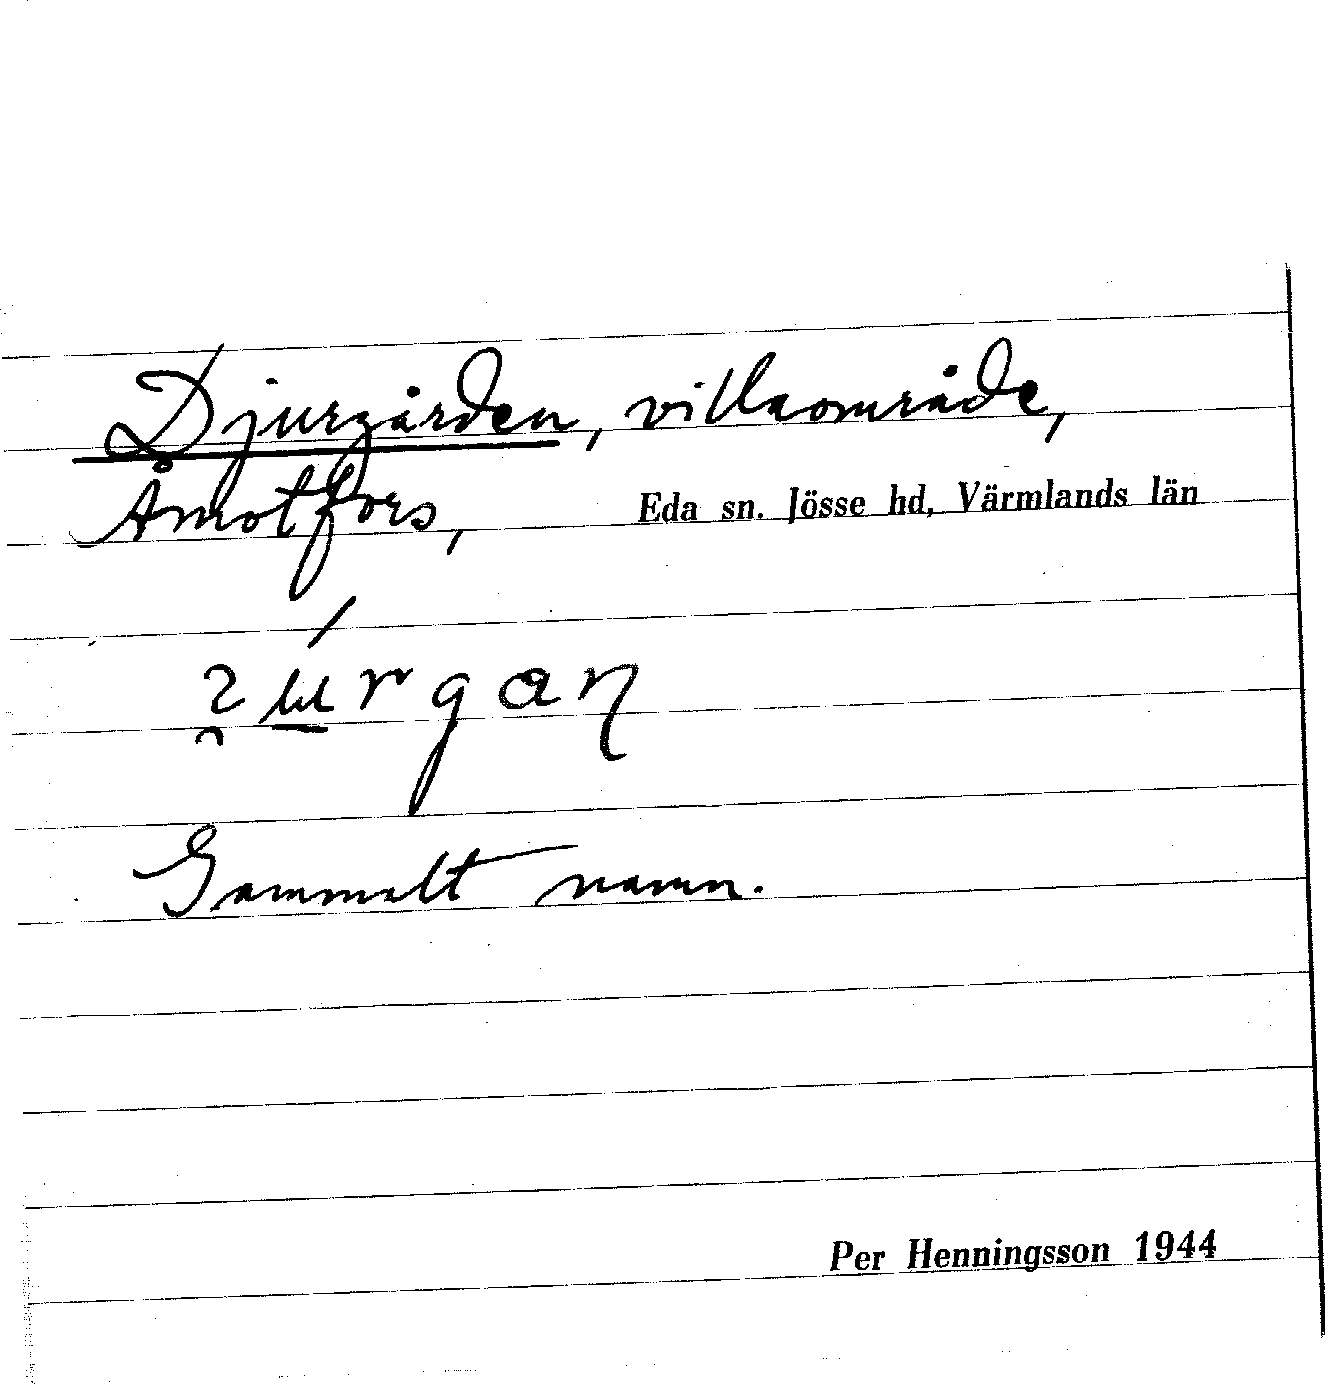 Djurgården, villaområde,
Åmotfors, Eda sn. Jösse hd, Värmlands län
Gammalt namn.
Per Henningsson 1944